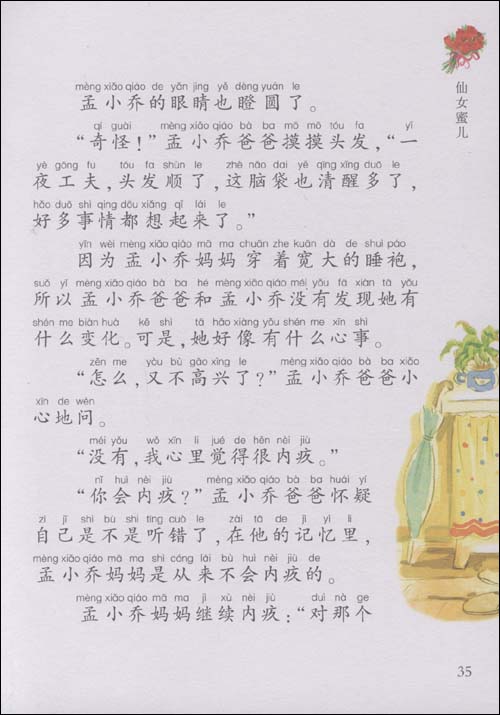 仙女蜜儿
mèng xiǎo qiáo de yǎn jing yě dèng yuán le
孟小乔的眼睛也瞪圆了。
qí guài mèng xiǎo qiáo bà ba mō mō tóu fa yī
“奇怪！”孟小乔爸爸摸摸头发，“一
yè gōng fu tóu fa shùn le zhè nǎo dai yě qīng xǐng duō le
夜工夫，头发顺了，这脑袋也清醒多了，
hǎo duō shì qing dōu xiǎng qǐ lái le
好多事情都想起来了。”
yīn wèi mèng xiǎo qiáo mā ma chuān zhe kuān dà de shuì páo
因为孟小乔妈妈穿着宽大的睡袍，
suǒ yǐ mèng xiǎo qiáo bà ba hé mèng xiǎo qiáo méi yǒu fā xiàn tā yǒu
所以孟小乔爸爸和孟小乔没有发现她有
shén me biàn huà kě shì tā hǎo xiàng yǒu shén me xīn shì
什么变化。可是，她好像有什么心事。
zěn me yòu bù gāo xìng le mèng xiǎo qiáo bà ba xiǎo
“怎么，又不高兴了？”孟小乔爸爸小
xīn de wèn
心地问。
méi yǒu wǒ xīn li jué de hěn nèi jiù
“没有，我心里觉得很内疚。”
nǐ huì nèi jiù mèng xiǎo qiáo bà ba huái yí
“你会内疚？”孟小乔爸爸怀疑
zì jǐ shì bú shì tīng cuò le zài tā de jì yì li
自己是不是听错了，在他的记忆里，
mèng xiǎo qiáo mā ma shì cóng lái bú huì nèi jiù de
孟小乔妈妈是从来不会内疚的。
mèng xiǎo qiáo mā ma jì xù nèi jiù duì nà ge
孟小乔妈妈继续内疚：“对那个
35